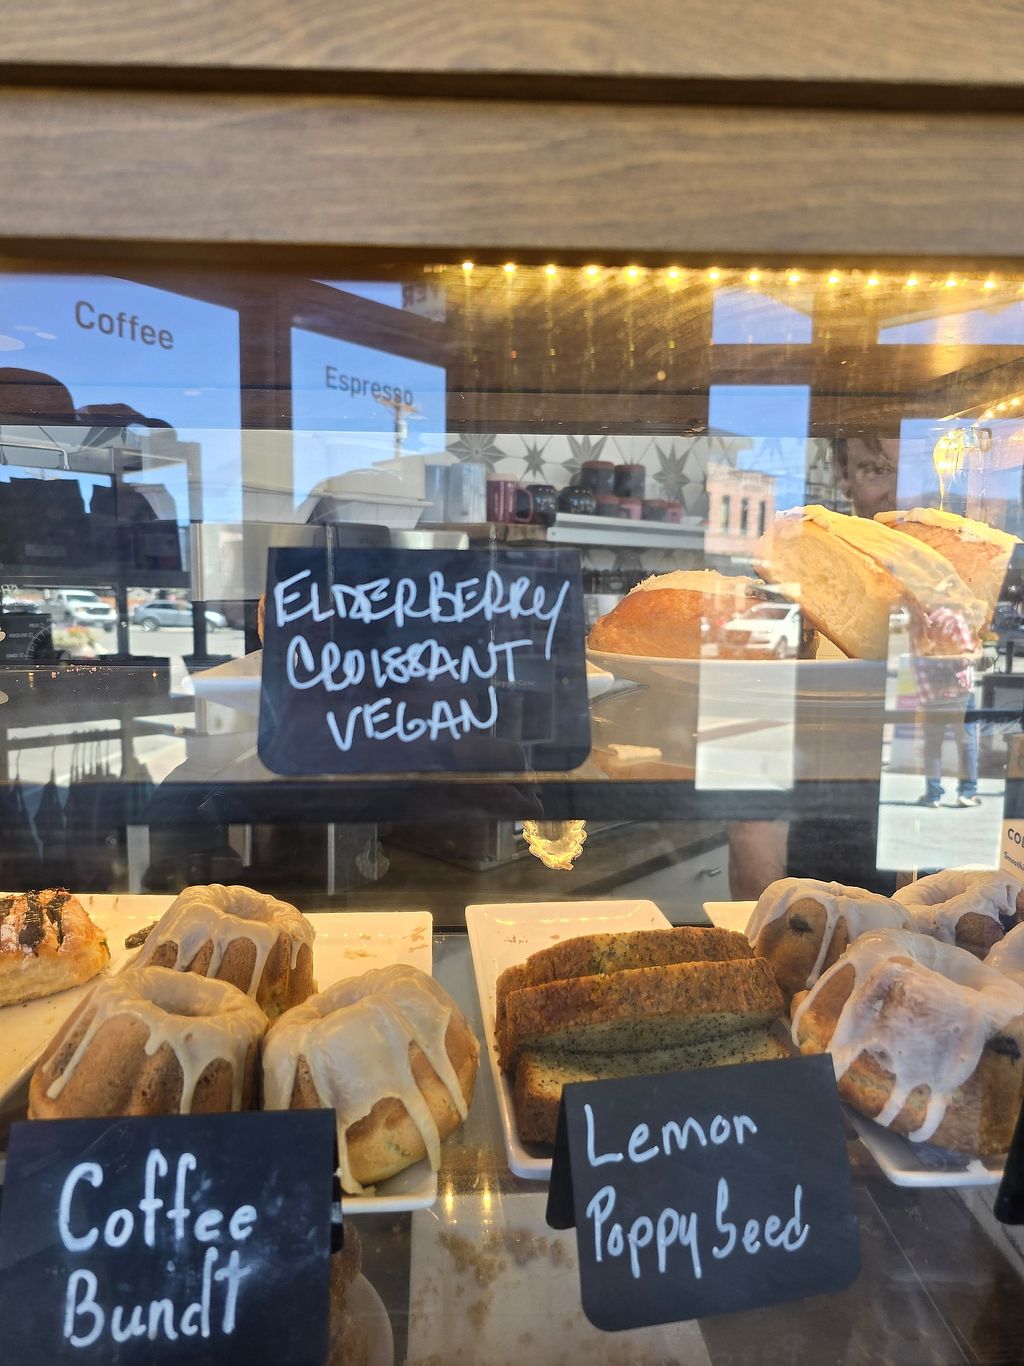 Coffee
Espresso
ELDERBERRY
CROISSANT
VEGAN
HappyCow
Coffee
Bundt
Lemon
Poppy Seed